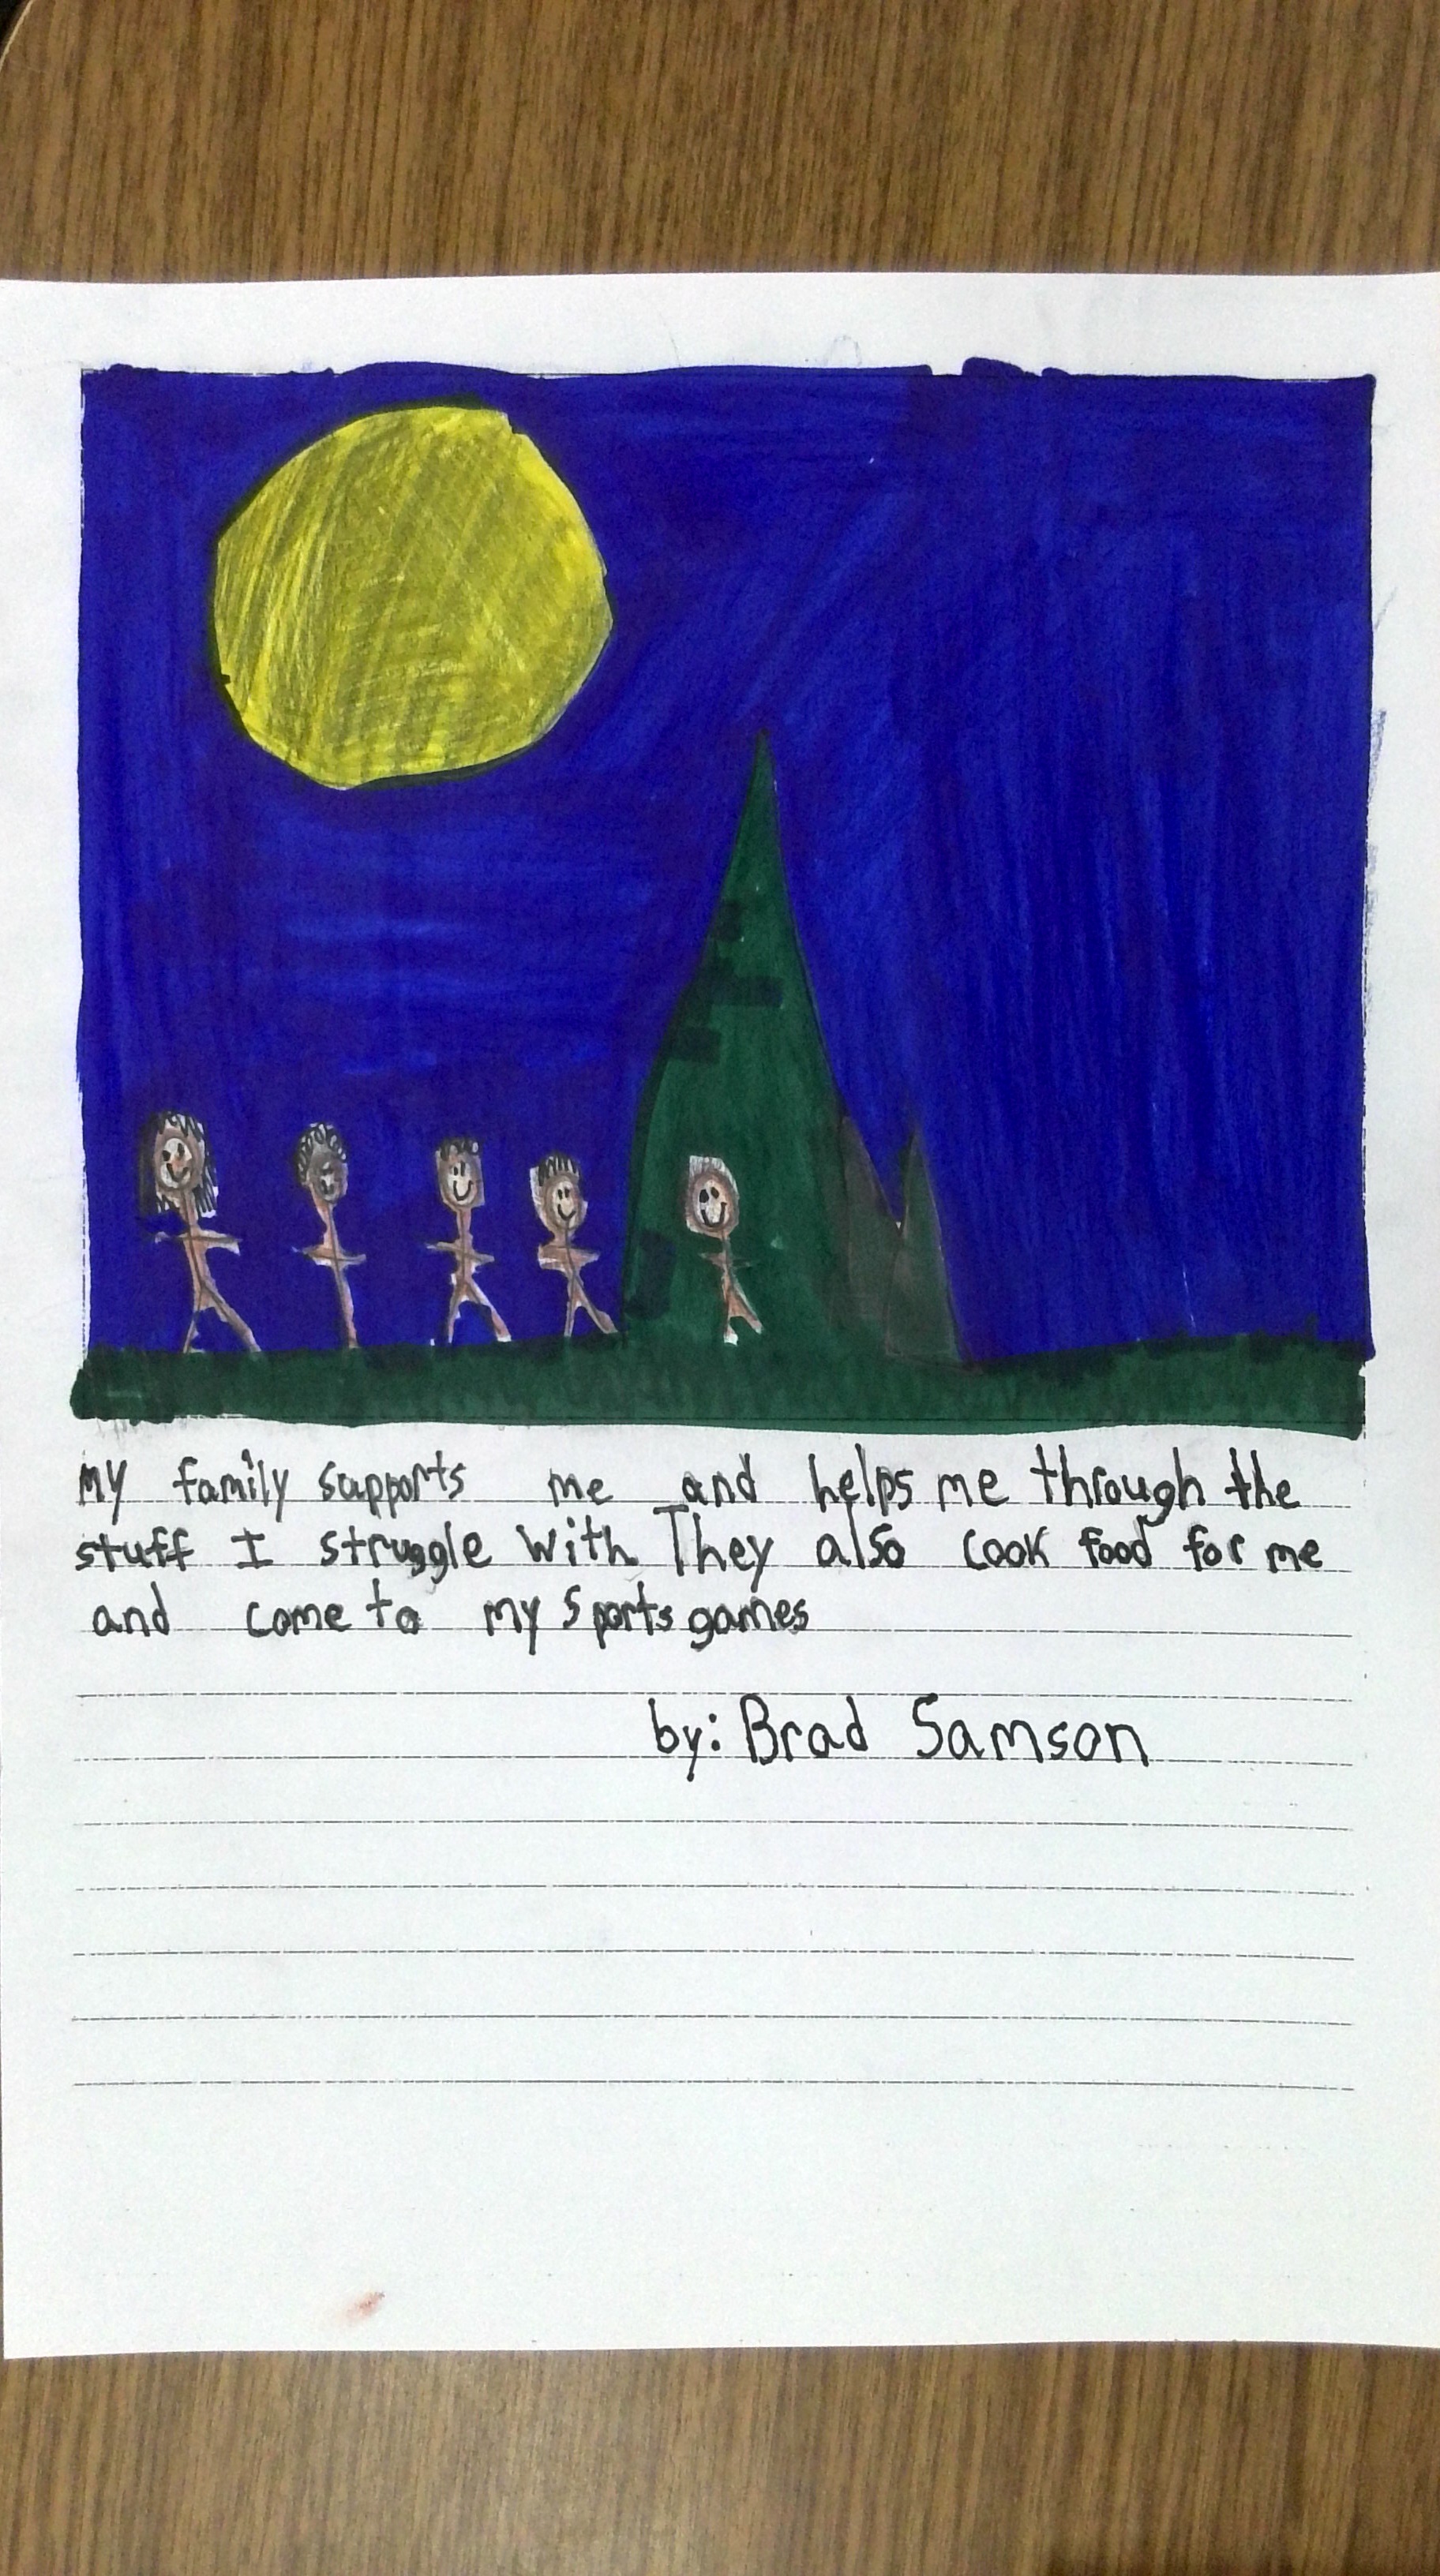 my family supports me and helps me through the
stuff I struggle with They also cook food for me
and come to my sports games
by: Brad Samson